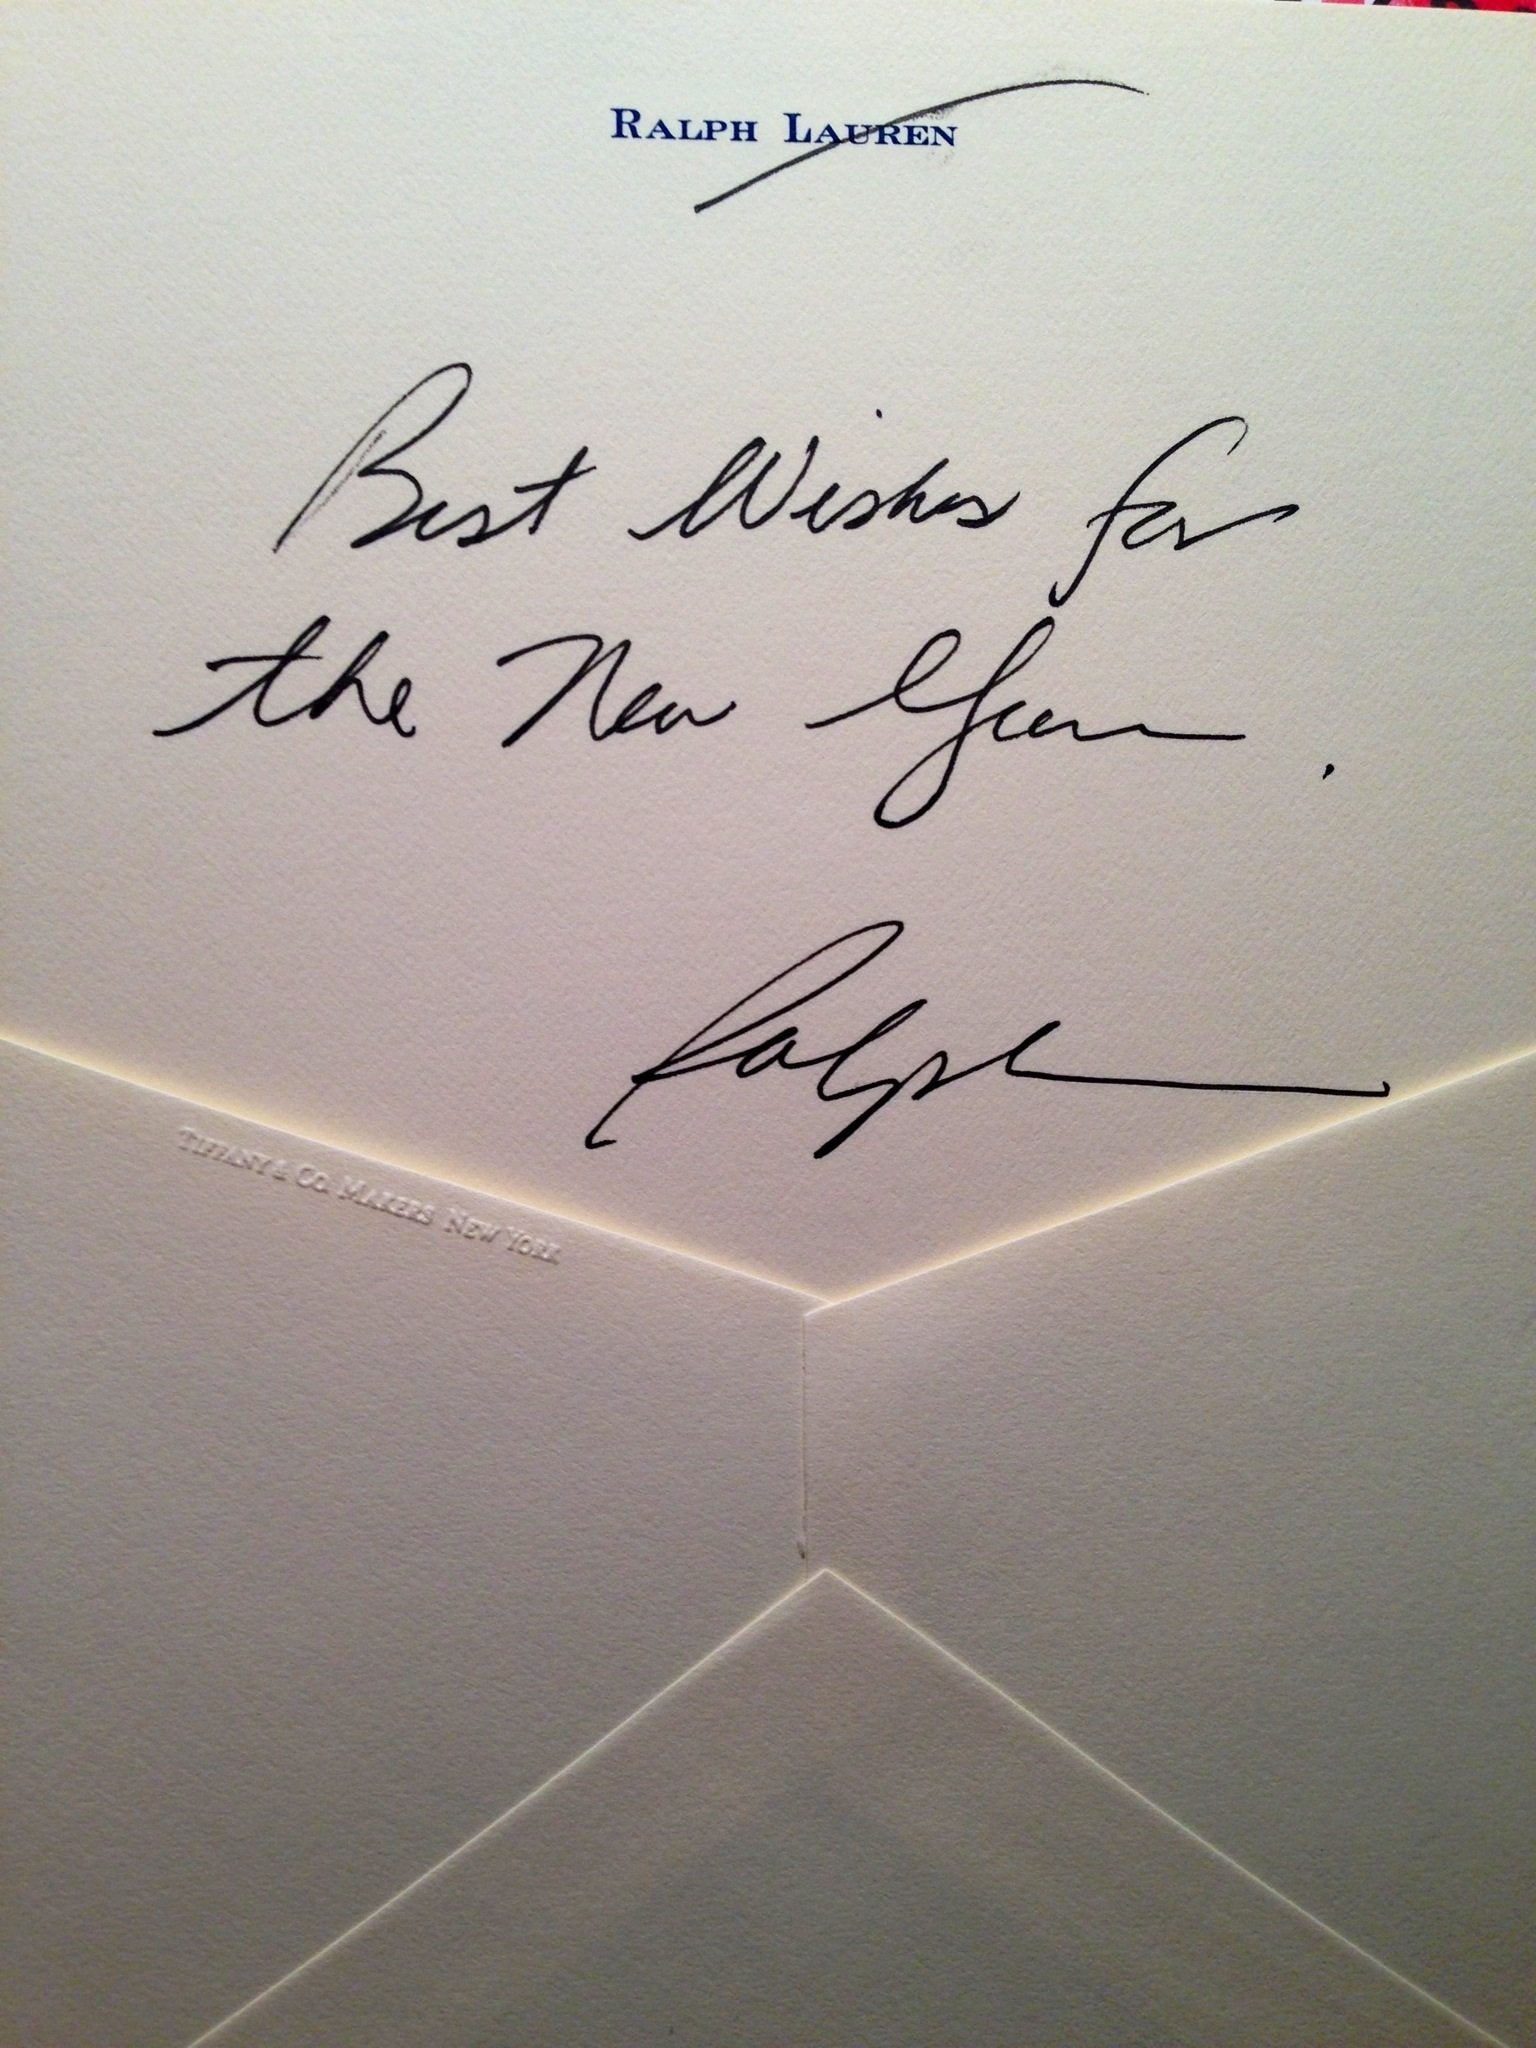 Ralph Lauren
Best Wishes for
the New Year.
Ralph
Tiffany & Co. Makers New York